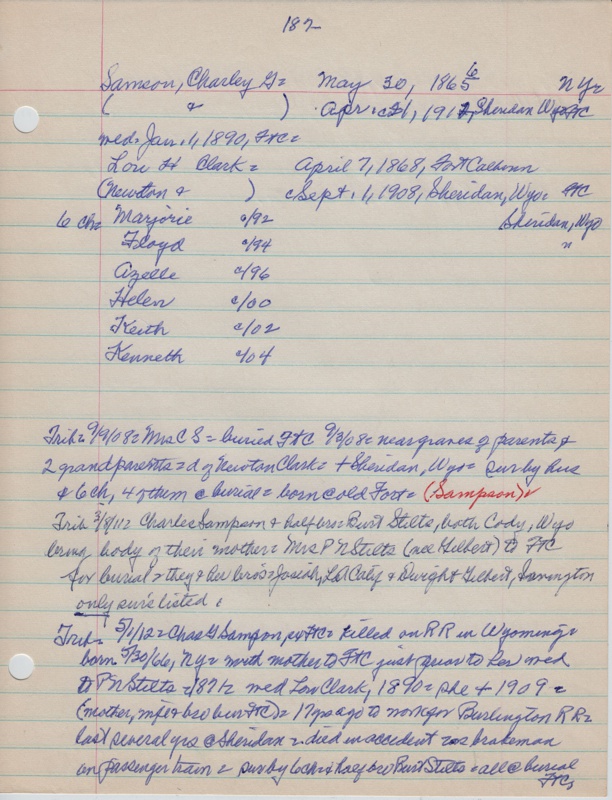 182
Samson, Charley G= May 30, 1865 6 NY=
( & ) Apr. c21, 1912, Sheridan Wyo= FtC
med= Jan. 1, 1890, FtC=
Lou H Clark = April 7, 1868, Fort Calhoun
(Newton & ) cSept. 1, 1908, Sheridan, Wyo= FtC
6 ch= Marjorie c/92 Sheridan, Wyo
Floyd c/94 "
Azelle c/96
Helen c/00
Keith c/02
Kenneth c/04
Trib= 9/9/08= Mrs C S = buried FtC 9/3/08= near graves of parents &
2 grandparents = d of Newton Clark= + Sheridan, Wyo= sur by hus
& 6 ch, 4 of them @ burial = born @ old Fort= (Sampson)
Trib 3/8/11= Charles Sampson & half bro= Burt Stilts, both Cody, Wyo
body of their mother= Mrs P N Stilts (nee Gilbert) to FtC
for burial = they & her bros= Josiah, & Dwight Gilbert,
only surs listed.
Trib= 5/1/12= Chas G Sampson, FtC= killed on RR in Wyoming=
born 5/30/66, NY= with mother to FtC just prior to her med
to P N Stilts = 1872= med Lou Clark, 1890= she + 1909=
(mother, wife & bro bur FtC)= 17 yrs ago to work for Burlington RR=
last several yrs @ Sheridan = died in accident as brakeman
on passenger train = sur by 6 ch & half bro Burt Stilts= all @ burial
FtC